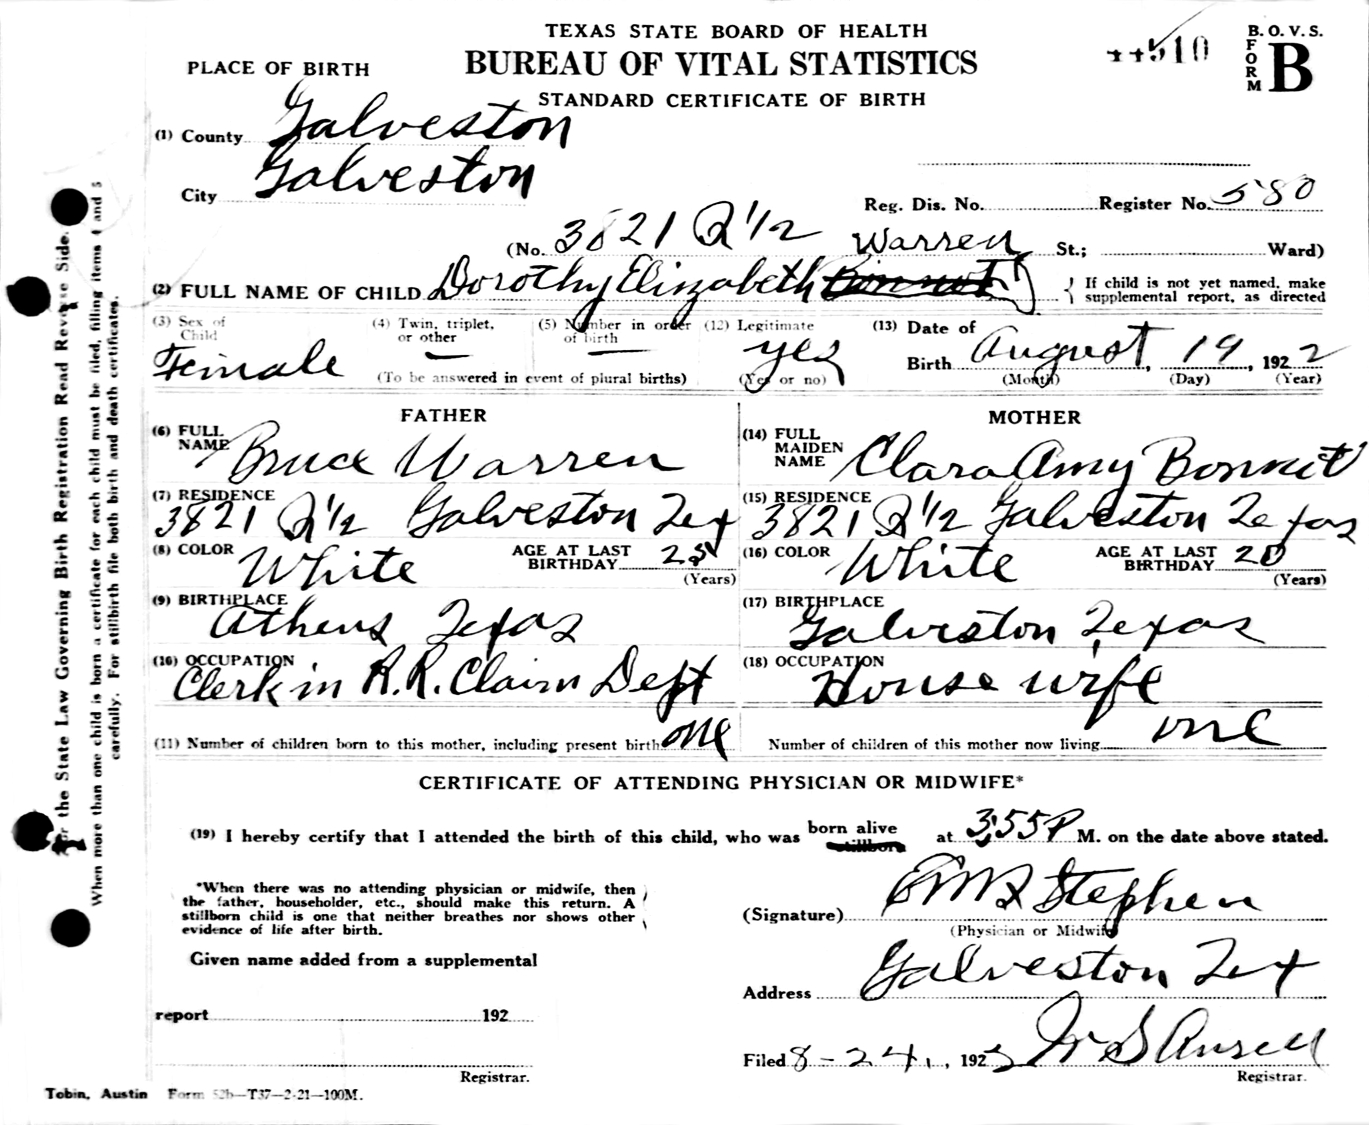 TEXAS STATE BOARD OF HEALTH
BUREAU OF VITAL STATISTICS
STANDARD CERTIFICATE OF BIRTH
510
B. O. V. S.
FORM B
PLACE OF BIRTH
(1) County Galveston
City Galveston
Reg. Dis. No. Register No. 580
(No. 3821 Q 1/2 St.; Ward)
Warren
(2) FULL NAME OF CHILD Dorothy Elizabeth Bonnot
If child is not yet named, make
supplemental report, as directed
(3) Sex of Child Female
(4) Twin, triplet, or other —
(5) Number in order of birth —
(To be answered in event of plural births)
(12) Legitimate yes
(Yes or no)
(13) Date of Birth August 19, 1922
(Month) (Day) (Year)
FATHER
(6) FULL NAME Bruce Warren
(7) RESIDENCE
3821 Q 1/2 Galveston Tex
(8) COLOR White AGE AT LAST BIRTHDAY 25 (Years)
(9) BIRTHPLACE
Athens Texas
(10) OCCUPATION
Clerk in R.R. Claim Dept
(11) Number of children born to this mother, including present birth one
MOTHER
(14) FULL MAIDEN NAME Clara Amy Bonnot
(15) RESIDENCE
3821 Q 1/2 Galveston Texas
(16) COLOR White AGE AT LAST BIRTHDAY 20 (Years)
(17) BIRTHPLACE
Galveston Texas
(18) OCCUPATION
House wife
Number of children of this mother now living one
CERTIFICATE OF ATTENDING PHYSICIAN OR MIDWIFE*
(19) I hereby certify that I attended the birth of this child, who was born alive stillborn at 3:55 P M. on the date above stated.
*When there was no attending physician or midwife, then
the father, householder, etc., should make this return. A
stillborn child is one that neither breathes nor shows other
evidence of life after birth.
Given name added from a supplemental
report 192
Registrar.
(Signature) Stephen
(Physician or Midwife)
Address Galveston Tex
Filed 8-24, 192
Registrar.
Tobin, Austin Form 52b—T37—2-21—100M.
For the State Law Governing Birth Registration Read Reverse Side.
When more than one child is born a certificate for each child must be filed, filling items 4 and 5
carefully. For stillbirth file both birth and death certificates.